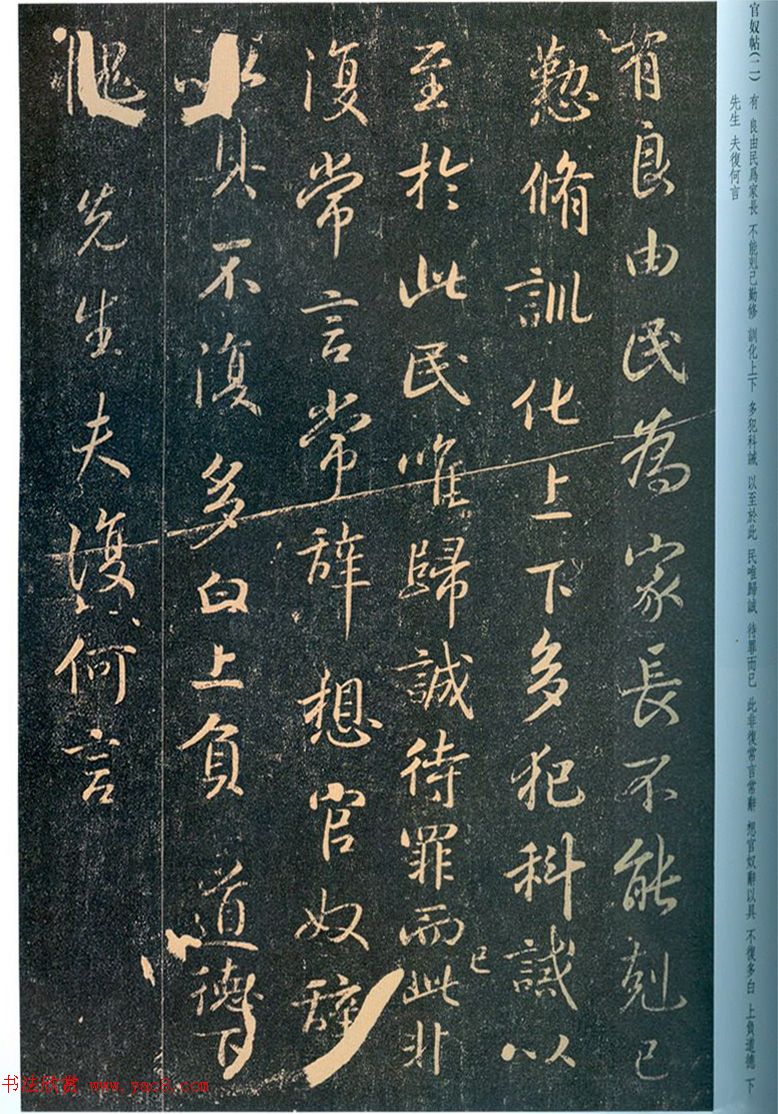 官奴帖(二) 有 良由民爲家長 不能剋己勤修 訓化上下 多犯科誡 以至於此 民唯歸誠 待罪而已 此非復常言常辭 想官奴辭以具 不復多白 上負道德 下
先生 夫復何言
有良由民為家長不能剋己
懃脩訓化上下多犯科誡以
至於此民唯歸誠待罪而已此非
復常言常辞想官奴辤
以具不復多白上負道德下
愧先生夫復何言
书法欣赏 www.yac8.com